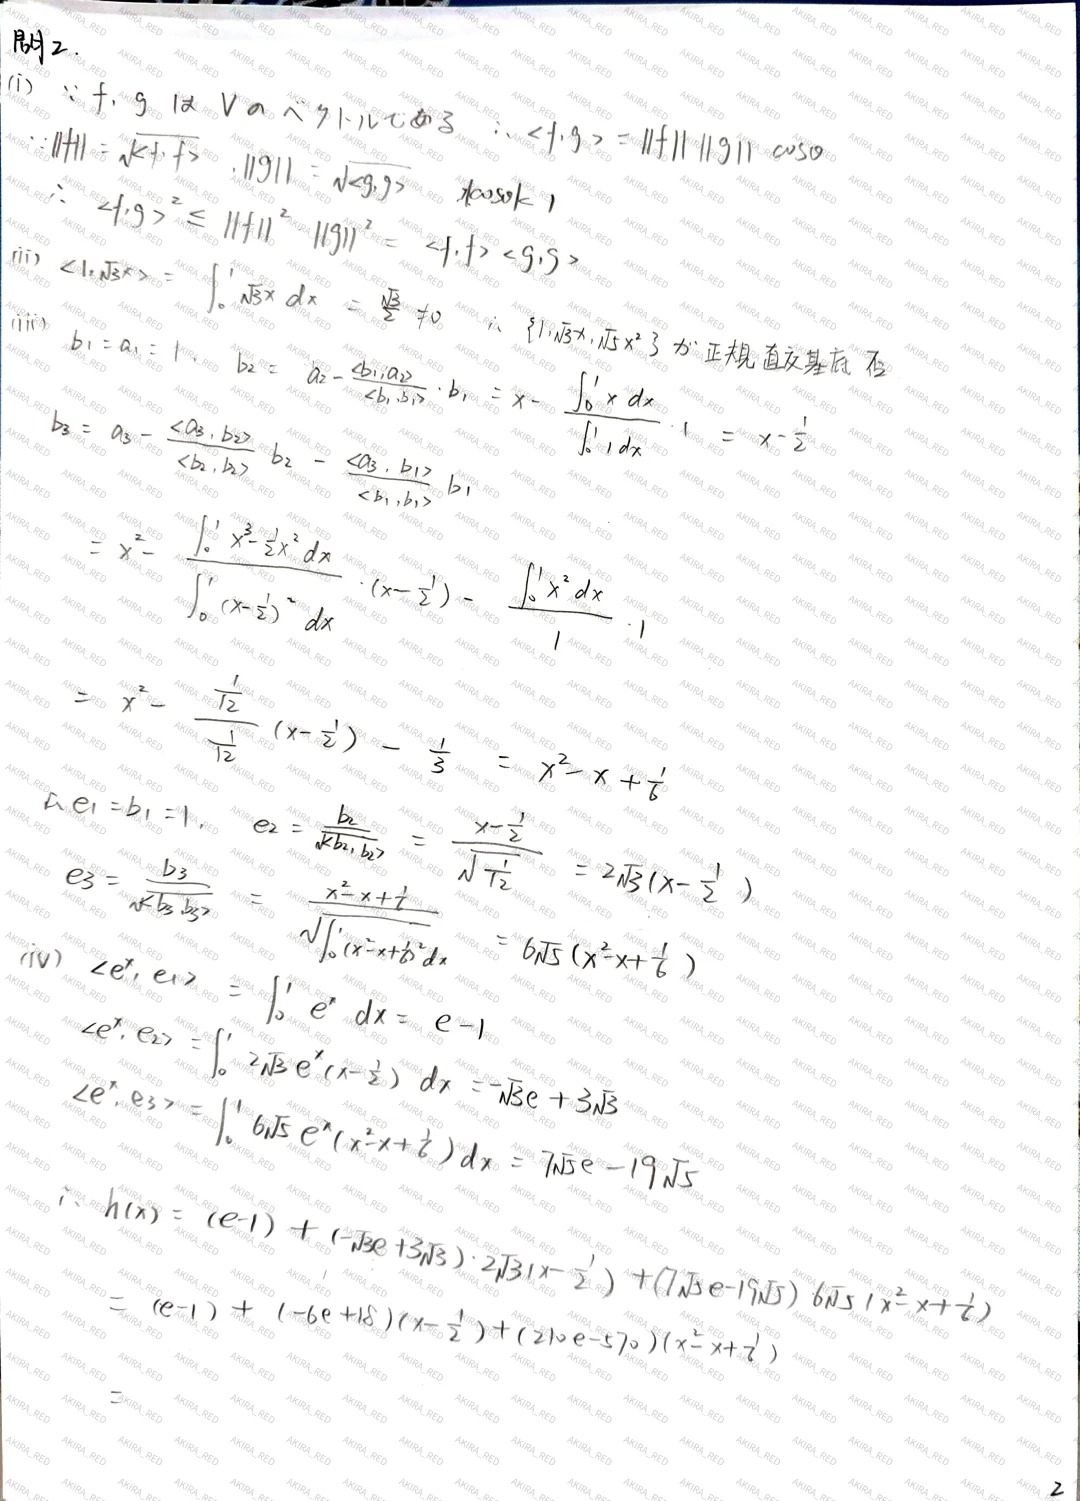 問2.
(i) ∵ f, g は V の ベクトルである ∴ <f,g> = ||f|| ||g|| cosθ
∵ ||f|| = √<f,f> , ||g|| = √<g,g> |cosθ|≤ 1
∴ <f,g>² ≤ ||f||² ||g||² = <f,f> <g,g>
(ii) <1,√3x> = ∫₀¹ √3x dx = √3/2 ≠0 ∴ {1,√3x,√5x²} が 正規直交基底 否
(iii) b₁ = a₁ = 1, b₂ = a₂ - <b₁,a₂>/<b₁,b₁> · b₁ = x - ∫₀¹ x dx / ∫₀¹ 1 dx · 1 = x - 1/2
b₃ = a₃ - <a₃,b₂>/<b₂,b₂> b₂ - <a₃,b₁>/<b₁,b₁> b₁
= x² - ∫₀¹ x³-1/2x² dx / ∫₀¹ (x-1/2)² dx · (x-1/2) - ∫₀¹ x² dx / 1 · 1
= x² - (1/12)/(1/12) (x-1/2) - 1/3 = x² - x + 1/6
∴ e₁ = b₁ = 1, e₂ = b₂/√<b₂,b₂> = (x-1/2)/√(1/12) = 2√3(x-1/2)
e₃ = b₃/√<b₃,b₃> = (x²-x+1/6)/√∫₀¹(x²-x+1/6)²dx = 6√5(x²-x+1/6)
(iv) <eˣ, e₁> = ∫₀¹ eˣ dx = e-1
<eˣ, e₂> = ∫₀¹ 2√3 eˣ(x-1/2) dx = -√3e + 3√3
<eˣ, e₃> = ∫₀¹ 6√5 eˣ(x²-x+1/6) dx = 7√5e - 19√5
∴ h(x) = (e-1) + (-√3e+3√3)·2√3(x-1/2) + (7√5e-19√5) 6√5(x²-x+1/6)
= (e-1) + (-6e+18)(x-1/2) + (210e-570)(x²-x+1/6)
=
2
AKIRA_RED